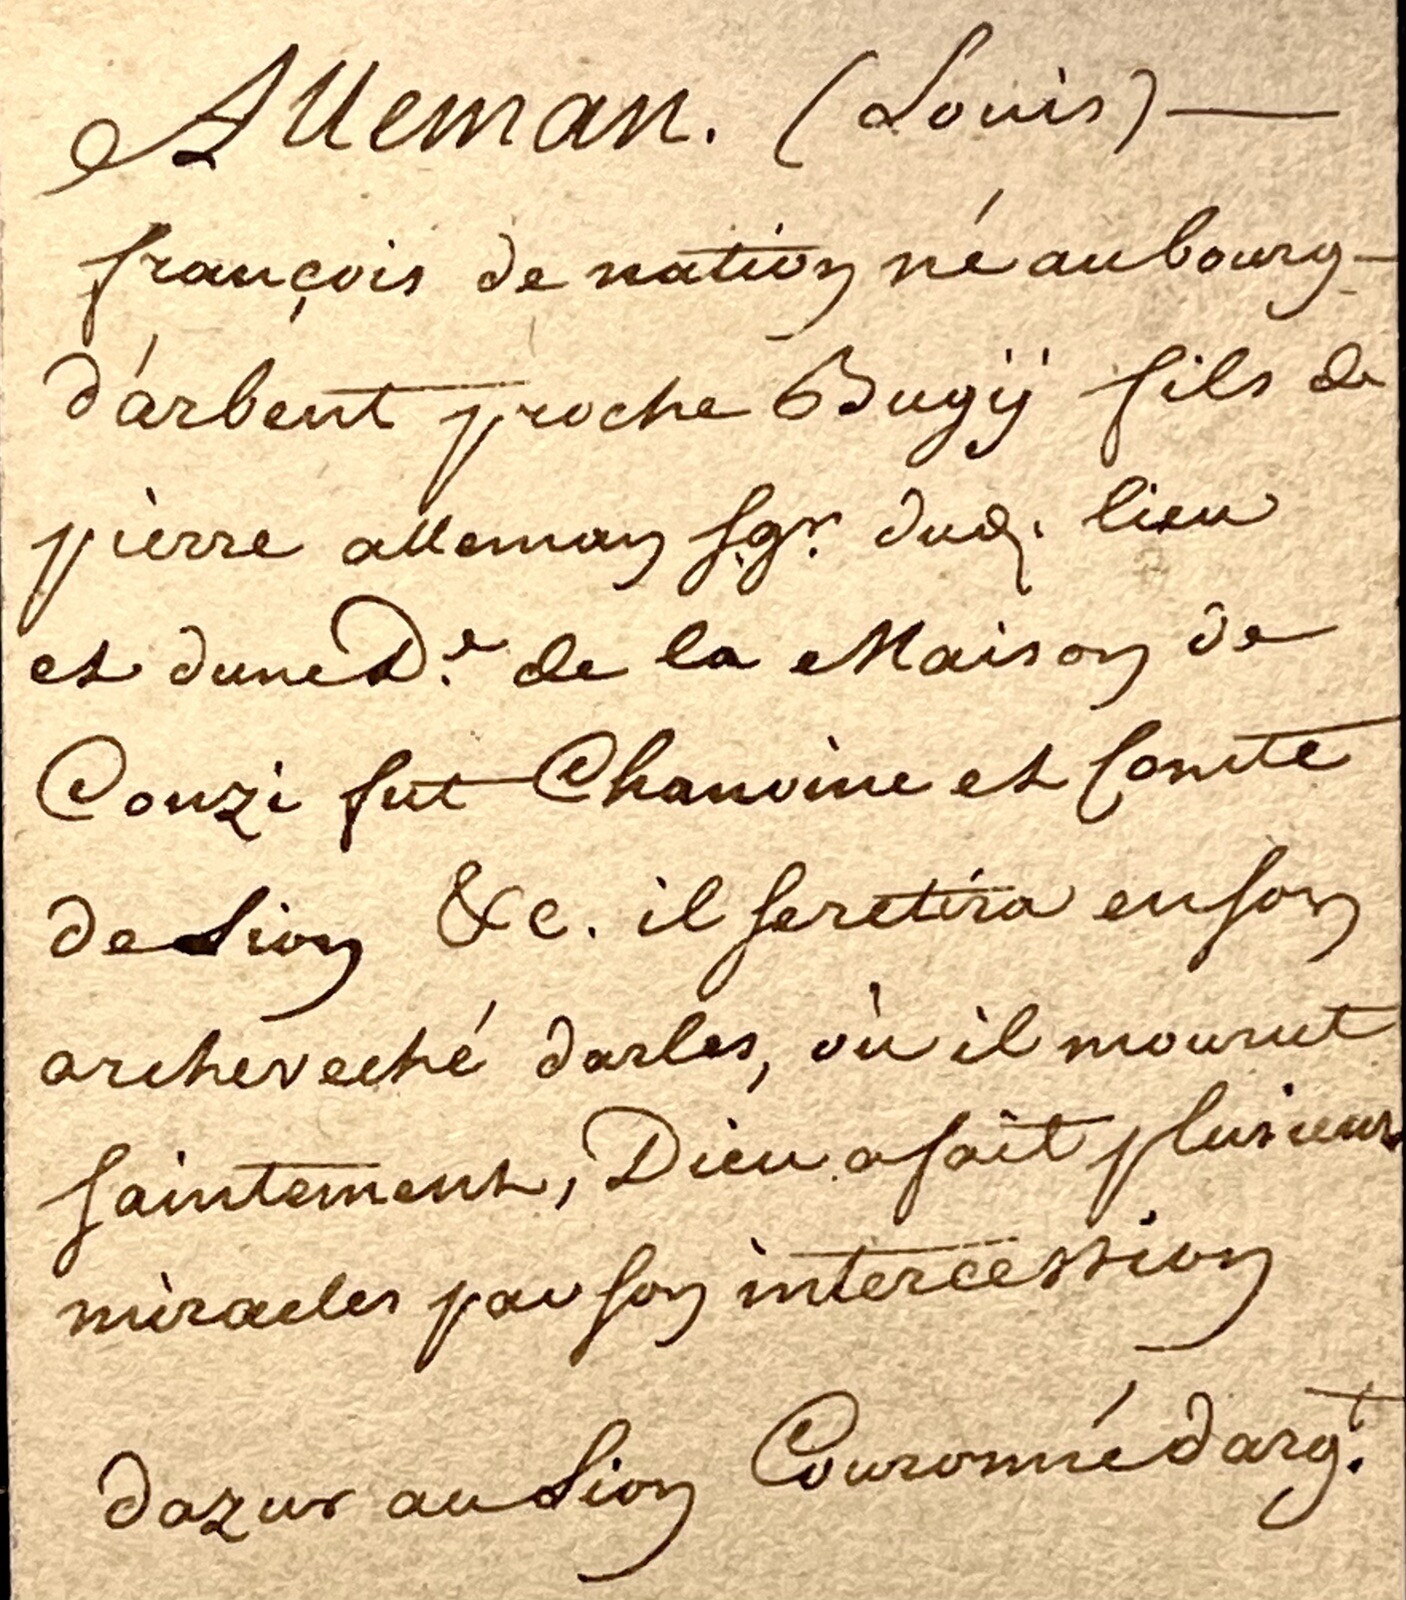 Alleman. (Louis) —
françois de nation né au bourg -
d'arbent proche Bugÿ fils de
pierre alleman sgr. dud. lieu
et dune De. de la Maison de
Couzi fut Chanoine et Comte
de Lion &c. il se retira en son
archeveché darles, où il mourut
saintement, Dieu a fait plusieurs
miracles par son intercession
dazur au Lion Couronné dargt.